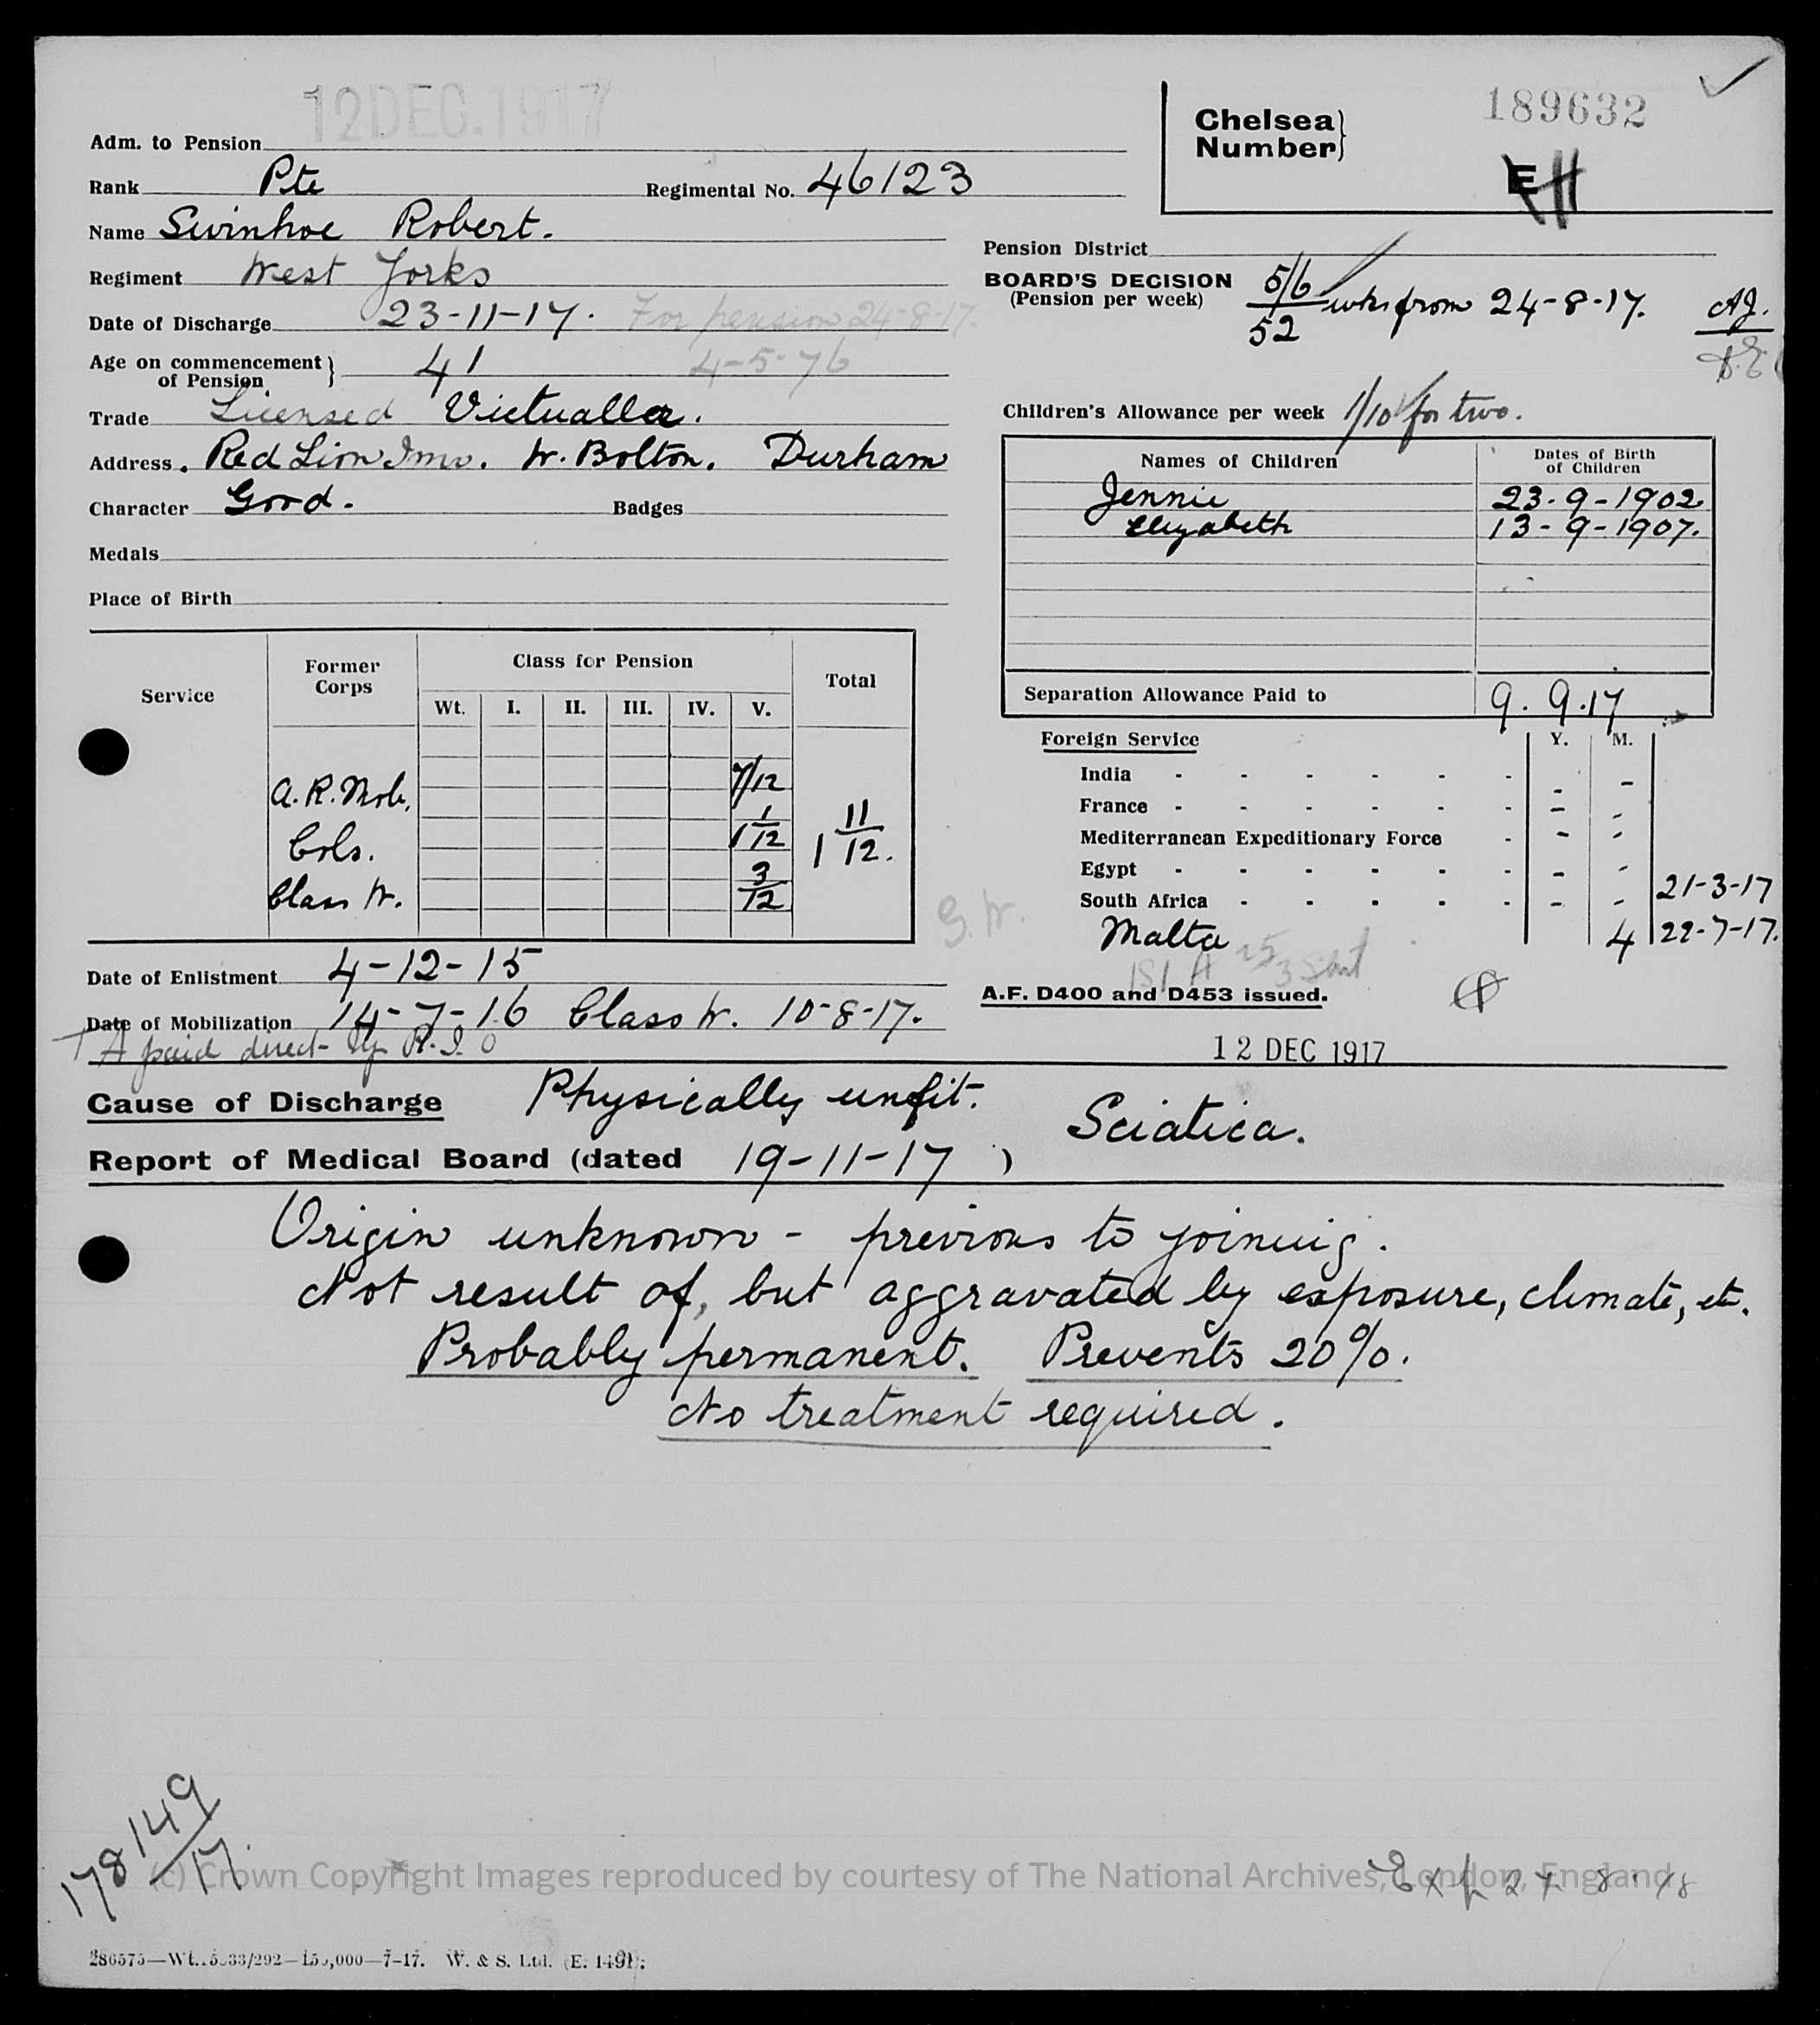 12 DEC. 1917
Adm. to Pension
Chelsea Number} 189632
E
Rank Pte Regimental No. 46123
Name Swinhoe Robert.
Regiment West Yorks
Date of Discharge 23-11-17. For pension 24-8-17.
Age on commencement of Pension} 41 4-5-76
Trade Licensed Victualler.
Address. Red Lion Inn. W. Bolton. Durham
Character Good. Badges
Medals
Place of Birth
Pension District
BOARD'S DECISION (Pension per week) 5/6 / 52 wks from 24-8-17. AJ.
Children's Allowance per week 1/10 for two.
Names of Children Dates of Birth of Children
Jennie 23-9-1902.
Elizabeth 13-9-1907.
Separation Allowance Paid to 9.9.17
Service Former Corps Class for Pension Total
Wt. I. II. III. IV. V.
A.R. Mob. 7/12
Cols. 1 1/12 1 11/12.
Class W. 3/12
Foreign Service Y. M.
India - - - - - - - -
France - - - - - - - -
Mediterranean Expeditionary Force - - -
Egypt - - - - - - - -
South Africa - - - - - - - 21-3-17
Malta 4 22-7-17.
G.W.
Date of Enlistment 4-12-15
Date of Mobilization 14-7-16 Class W. 10-8-17.
A.F. D400 and D453 issued.
paid direct by R.
12 DEC 1917
Cause of Discharge Physically unfit. Sciatica.
Report of Medical Board (dated 19-11-17)
Origin unknown - previous to joining.
Not result of, but aggravated by exposure, climate, etc.
Probably permanent. Prevents 20%.
No treatment required.
178149/17.
(c) Crown Copyright Images reproduced by courtesy of The National Archives, London, England
Exp 24 8.18
W. & S. Ltd.